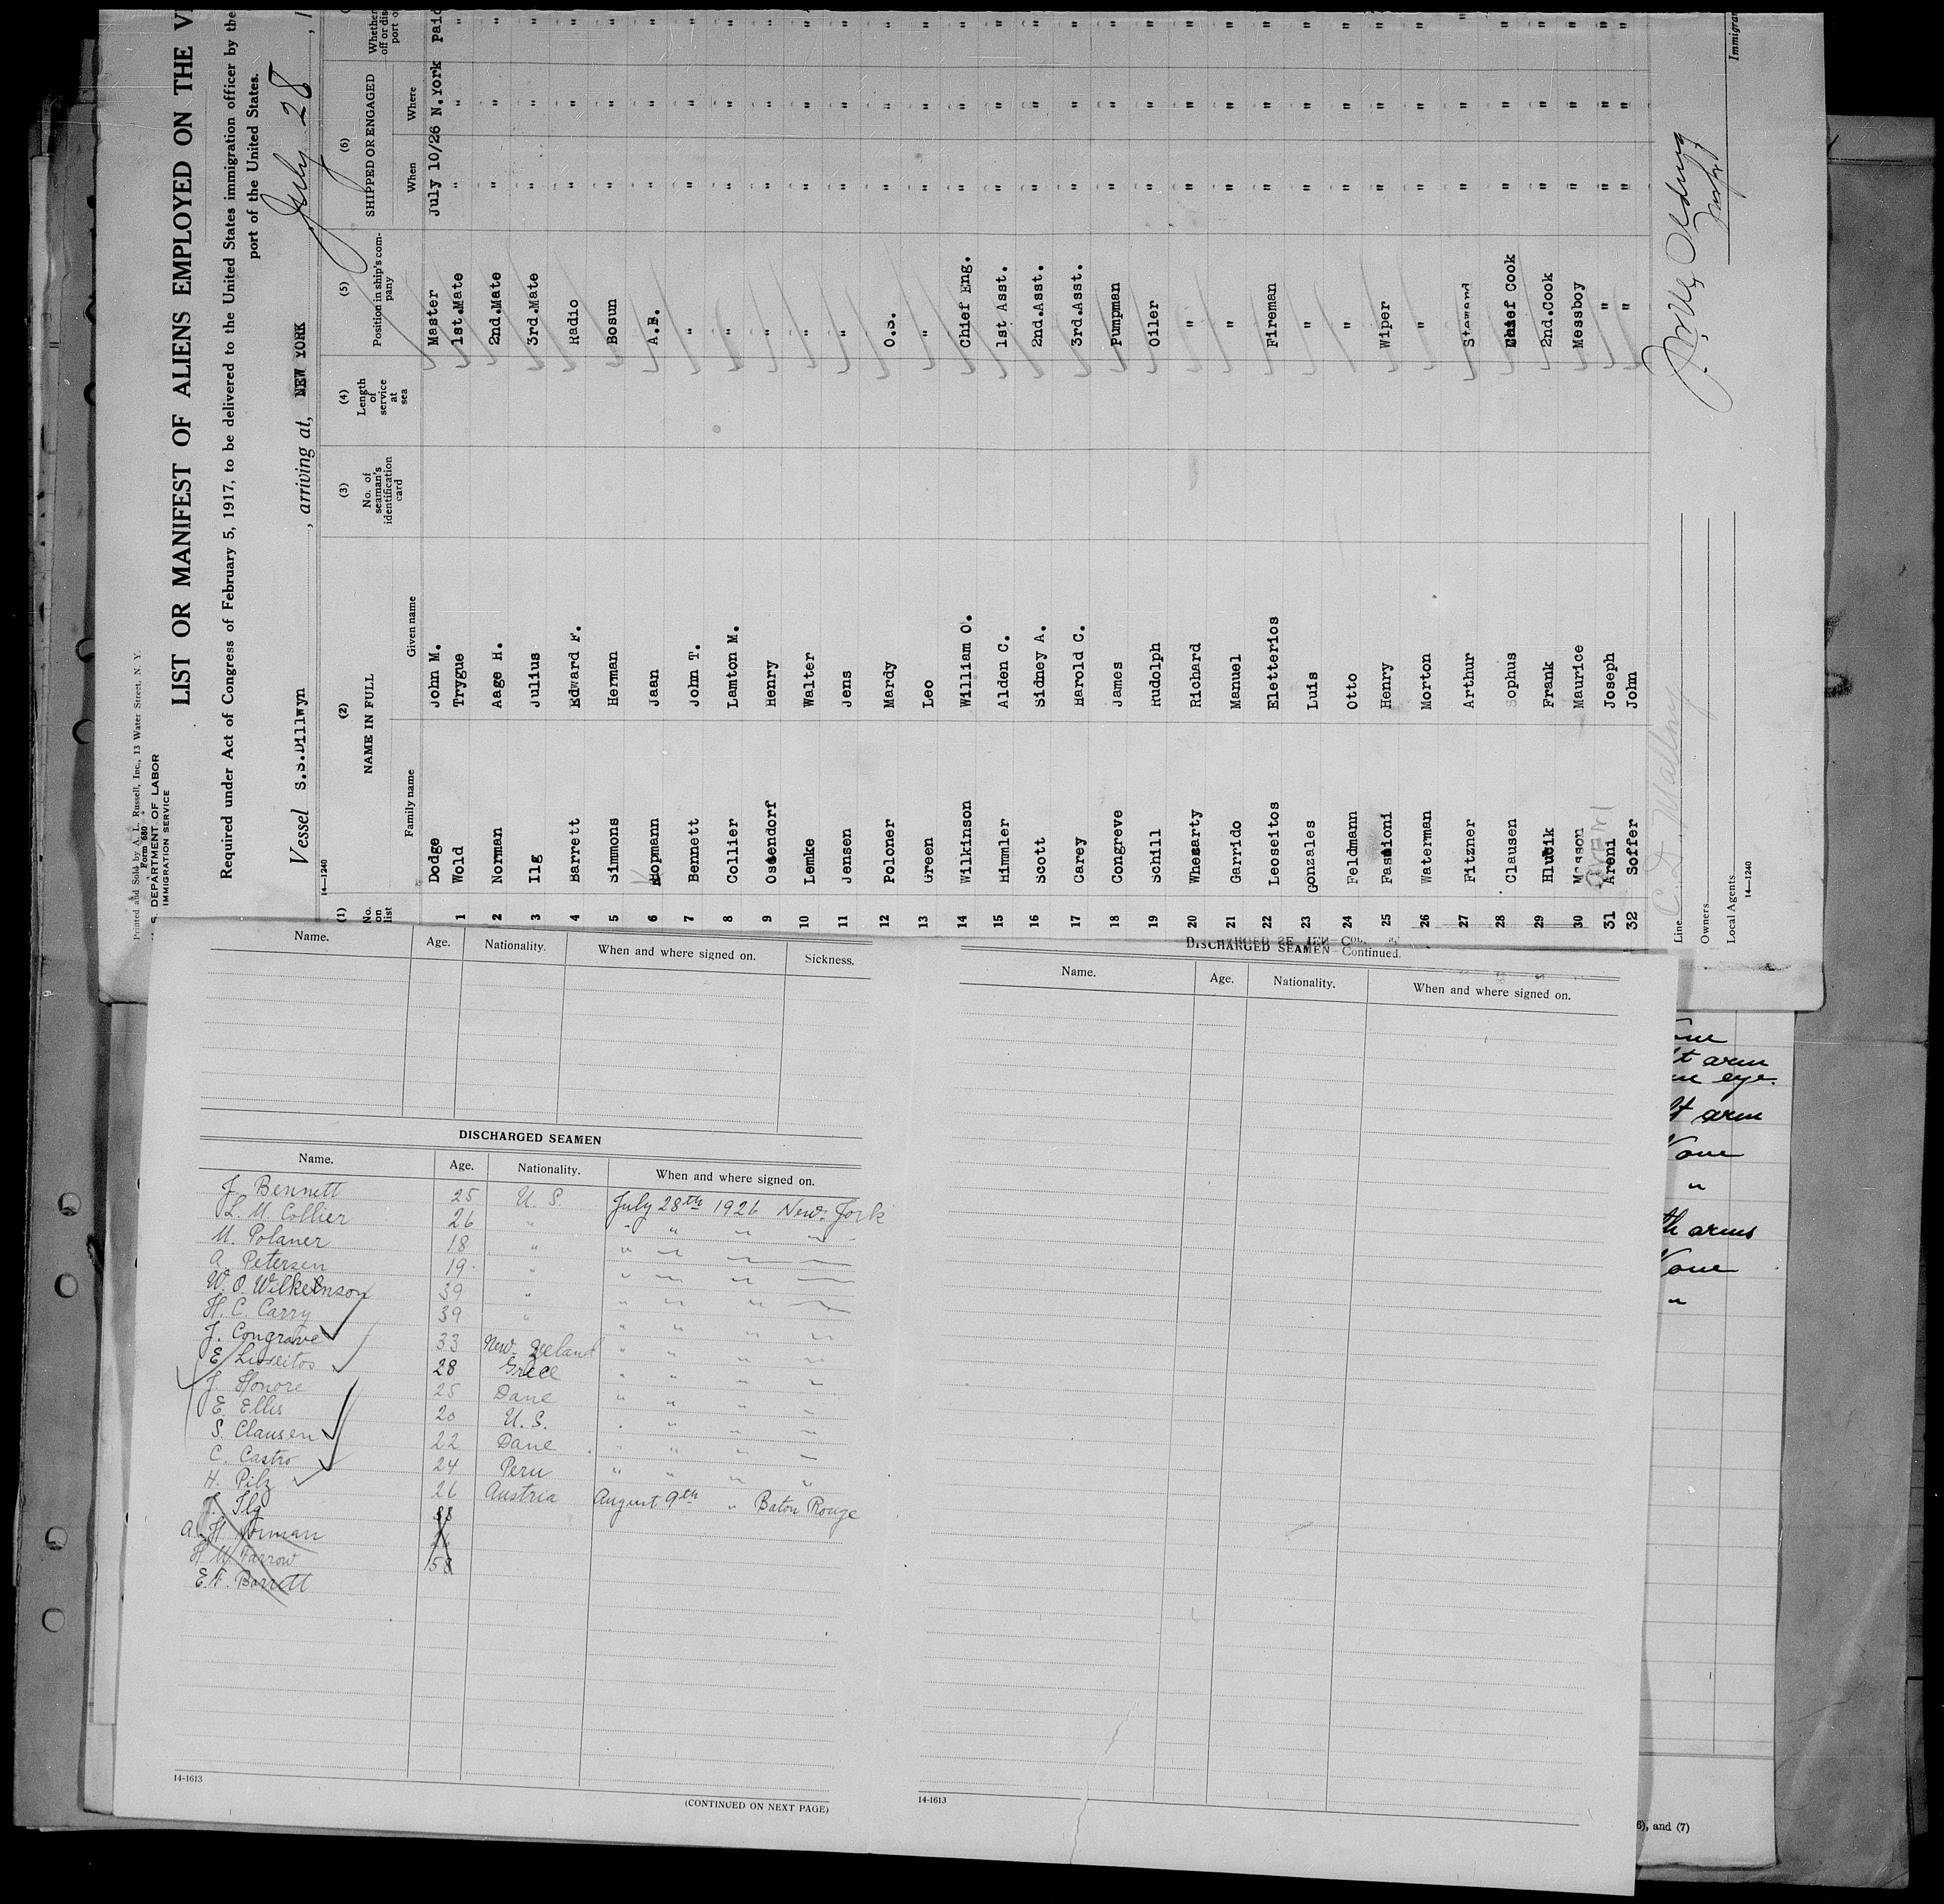 Printed and Sold by A. L. Russell, Inc., 13 Water Street, N. Y.
Form 680
U. S. DEPARTMENT OF LABOR
IMMIGRATION SERVICE
LIST OR MANIFEST OF ALIENS EMPLOYED ON THE
Required under Act of Congress of February 5, 1917, to be delivered to the United States immigration officer by the
port of the United States.
Vessel S.S.Dillwyn, arriving at, NEW YORK July 28, 1
14—1240
(1) (2) (3) (4) (5) (6)
No. on list NAME IN FULL No. of seaman's identification card Length of service at sea Position in ship's company SHIPPED OR ENGAGED Whether
Family name Given name When Where
Dodge John M. Master July 10/26 N.York paid
1 Wold Trygue 1st.Mate " " "
2 Norman Aage H. 2nd.Mate " " "
3 Ilg Julius 3rd.Mate " " "
4 Barrett Edward F. Radio " " "
5 Simmons Herman Bosun " " "
6 Kopmann Jaan A.B. " " "
7 Bennett John T. " " " "
8 Collier Lamton M. " " " "
9 Ostendorf Henry " " " "
10 Lemke Walter " " " "
11 Jensen Jens " " " "
12 Poloner Mardy O.S. " " "
13 Green Leo " " " "
14 Wilkinson William O. Chief Eng. " " "
15 Himmler Alden C. 1st Asst. " " "
16 Scott Sidney A. 2nd.Asst. " " "
17 Carey Harold C. 3rd.Asst. " " "
18 Congreve James Pumpman " " "
19 Schill Rudolph Oiler " " "
20 Whesarty Richard " " " "
21 Garrido Manuel " " " "
22 Leoseitos Eletterios Fireman " " "
23 Gonzales Luis " " " "
24 Feldmann Otto " " " "
25 Fassioni Henry Wiper " " "
26 Waterman Morton " " " "
27 Fitzner Arthur Steward " " "
28 Clausen Sophus Chief Cook " " "
29 Frank 2nd.Cook " " "
30 Masson Maurice Messboy " " "
31 Areni Joseph " " " "
32 Soffer John " " " "
Line C. D. Mallory
Owners
Local Agents
14—1240
Immigrant
Name. Age. Nationality. When and where signed on. Sickness.
DISCHARGED SEAMEN
Name. Age. Nationality. When and where signed on.
J. Bennett 25 U. S. July 28th 1926 New York
L. M. Collier 26 " " " " "
M. Polaner 18 " " " " "
A. Petersen 19 " " " " "
W. O. Wilkeinson 39 " " " " "
H. C. Carry 39 " " " " "
J. Congrave 33 New Zeeland " " " "
E. Lisseitos 28 Grece " " " "
J. Honore 25 Dane " " " "
E. Ellis 20 U. S. " " " "
S. Clausen 22 Dane " " " "
C. Castro 24 Peru " " " "
H. Pilz 26 Austria August 9th " Baton Rouge
J. Ilg 38
A. H. Norman
H. M. Farrow 58
E. F. Barrett
14-1613
(CONTINUED ON NEXT PAGE)
DISCHARGED SEAMEN—Continued.
Name. Age. Nationality. When and where signed on.
14-1613
arm
eye.
arm
"
arms
"
6), and (7)